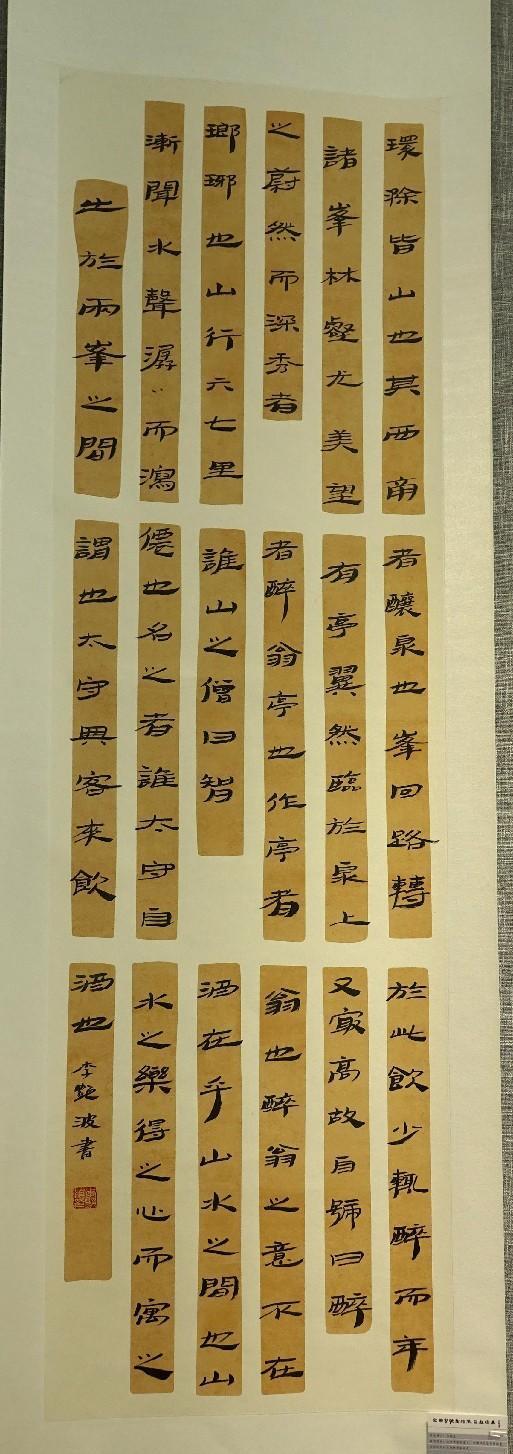 環滁皆山也其西南
諸峯林壑尤美望
之蔚然而深秀者
瑯琊也山行六七里
漸聞水聲潺〻而瀉
出於兩峯之間
者釀泉也峯回路轉
有亭翼然臨於泉上
者醉翁亭也作亭者
誰山之僧曰智
僊也名之者誰太守自
謂也太守與客來飲
於此飲少輒醉而年
又㝡高故自號曰醉
翁也醉翁之意不在
酒在乎山水之間也山
水之樂得之心而寓之
酒也 李艷波書